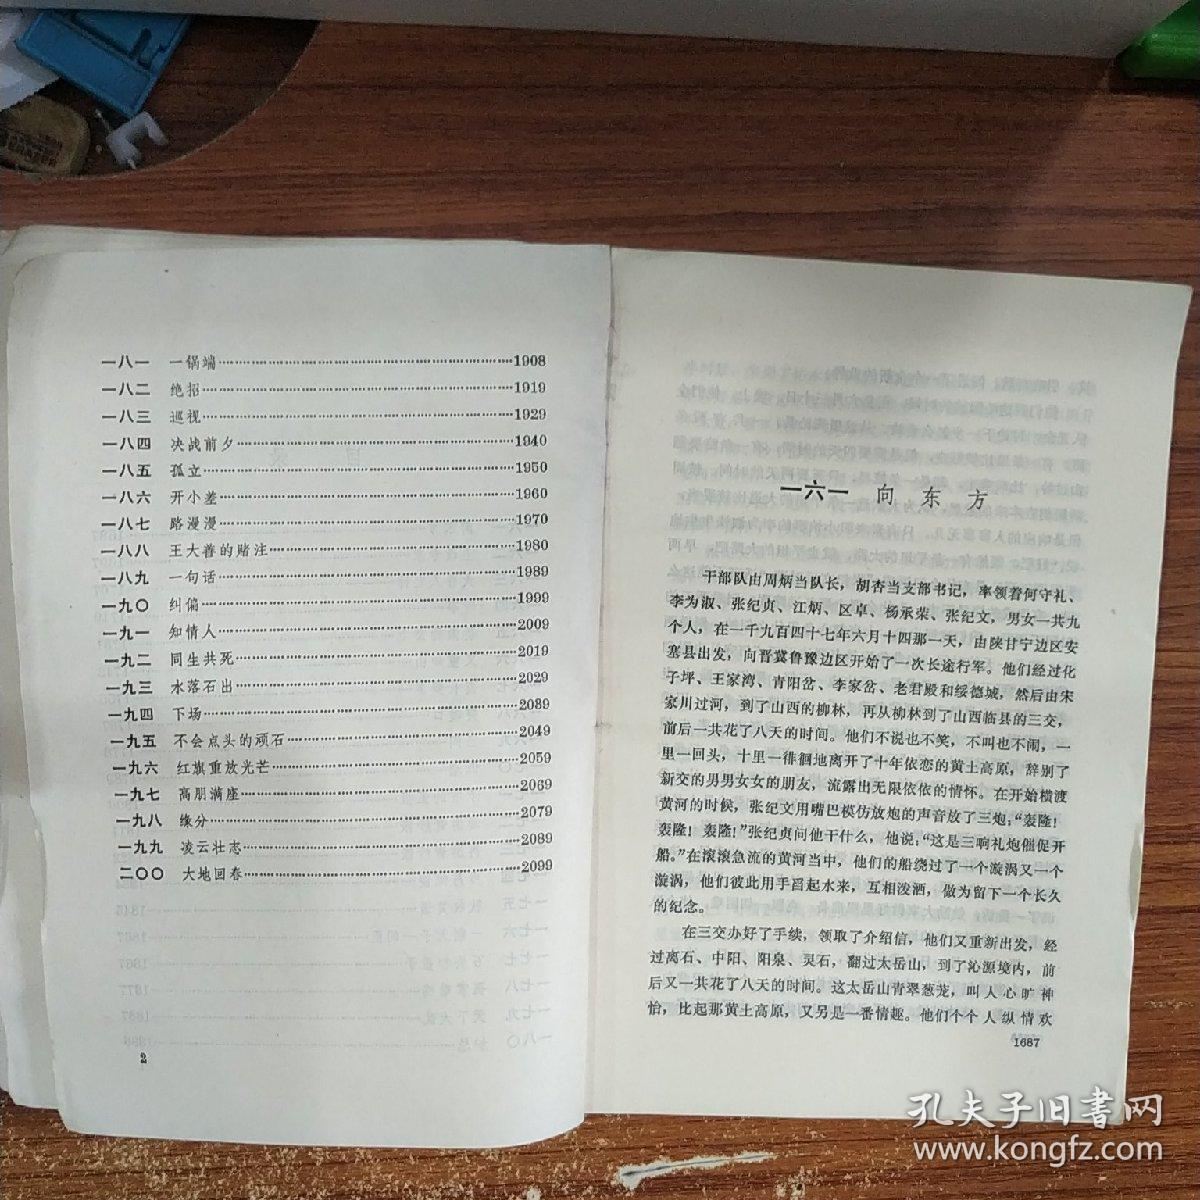 一八一 一锅端……1908
一八二 绝招……1919
一八三 巡视……1929
一八四 决战前夕……1940
一八五 孤立……1950
一八六 开小差……1960
一八七 路漫漫……1970
一八八 王大善的赌注……1980
一八九 一句话……1989
一九〇 纠偏……1999
一九一 知情人……2009
一九二 同生共死……2019
一九三 水落石出……2029
一九四 下场……2089
一九五 不会点头的顽石……2049
一九六 红旗重放光芒……2059
一九七 高朋满座……2069
一九八 缘分……2079
一九九 凌云壮志……2089
二〇〇 大地回春……2099
2
一六一 向东方
干部队由周炳当队长，胡杏当支部书记，率领着何守礼、
李为淑、张纪贞、江炳、区卓、杨承荣、张纪文，男女一共九
个人，在一千九百四十七年六月十四那一天，由陕甘宁边区安
塞县出发，向晋冀鲁豫边区开始了一次长途行军。他们经过化
子坪、王家湾、青阳岔、李家岔、老君殿和绥德城，然后由宋
家川过河，到了山西的柳林，再从柳林到了山西临县的三交，
前后一共花了八天的时间。他们不说也不笑，不叫也不闹，一
里一回头，十里一徘徊地离开了十年依恋的黄土高原，辞别了
新交的男男女女的朋友，流露出无限依依的情怀。在开始横渡
黄河的时候，张纪文用嘴巴模仿放炮的声音放了三炮：“轰隆！
轰隆！轰隆！”张纪贞问他干什么，他说：“这是三响礼炮催促开
船。”在滚滚急流的黄河当中，他们的船绕过了一个漩涡又一个
漩涡，他们彼此用手舀起水来，互相泼洒，做为留下一个长久
的纪念。
在三交办好了手续，领取了介绍信，他们又重新出发，经
过离石、中阳、阳泉、灵石，翻过太岳山，到了沁源境内，前
后又一共花了八天的时间。这太岳山青翠葱茏，叫人心旷神
怡，比起那黄土高原，又另是一番情趣。他们个个人纵情欢
1687
孔夫子旧书网
www.kongfz.com